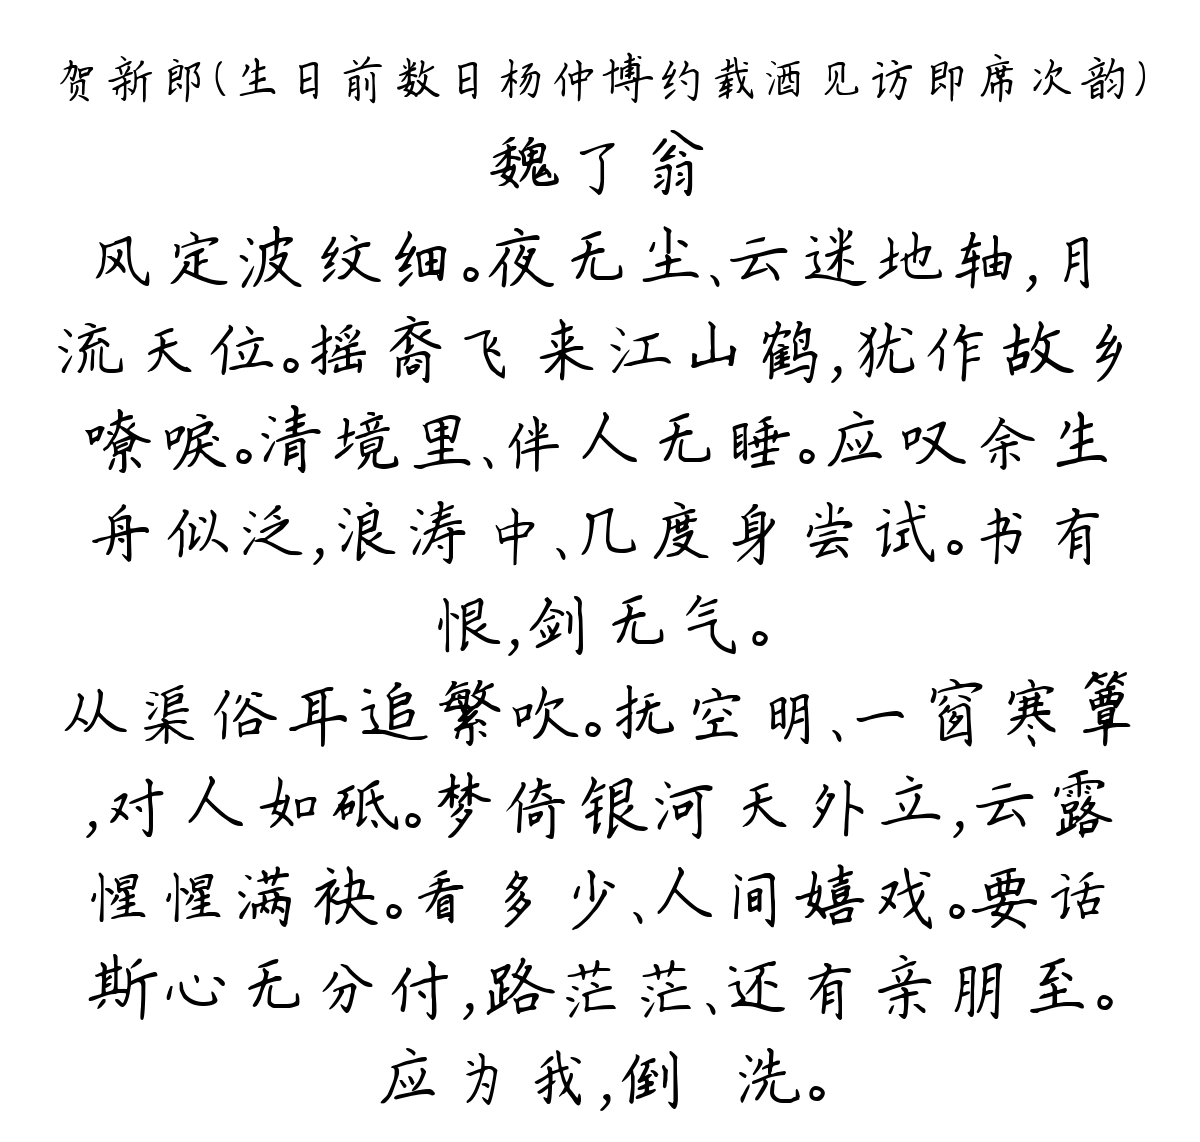 贺新郎(生日前数日杨仲博约载酒见访即席次韵)
魏了翁
风定波纹细。夜无尘、云迷地轴,月
流天位。摇裔飞来江山鹤,犹作故乡
嘹唳。清境里、伴人无睡。应叹余生
舟似泛,浪涛中、几度身尝试。书有
恨,剑无气。
从渠俗耳追繁吹。抚空明、一窗寒簟
,对人如砥。梦倚银河天外立,云露
惺惺满袂。看多少、人间嬉戏。要话
斯心无分付,路茫茫、还有亲朋至。
应为我,倒 洗。